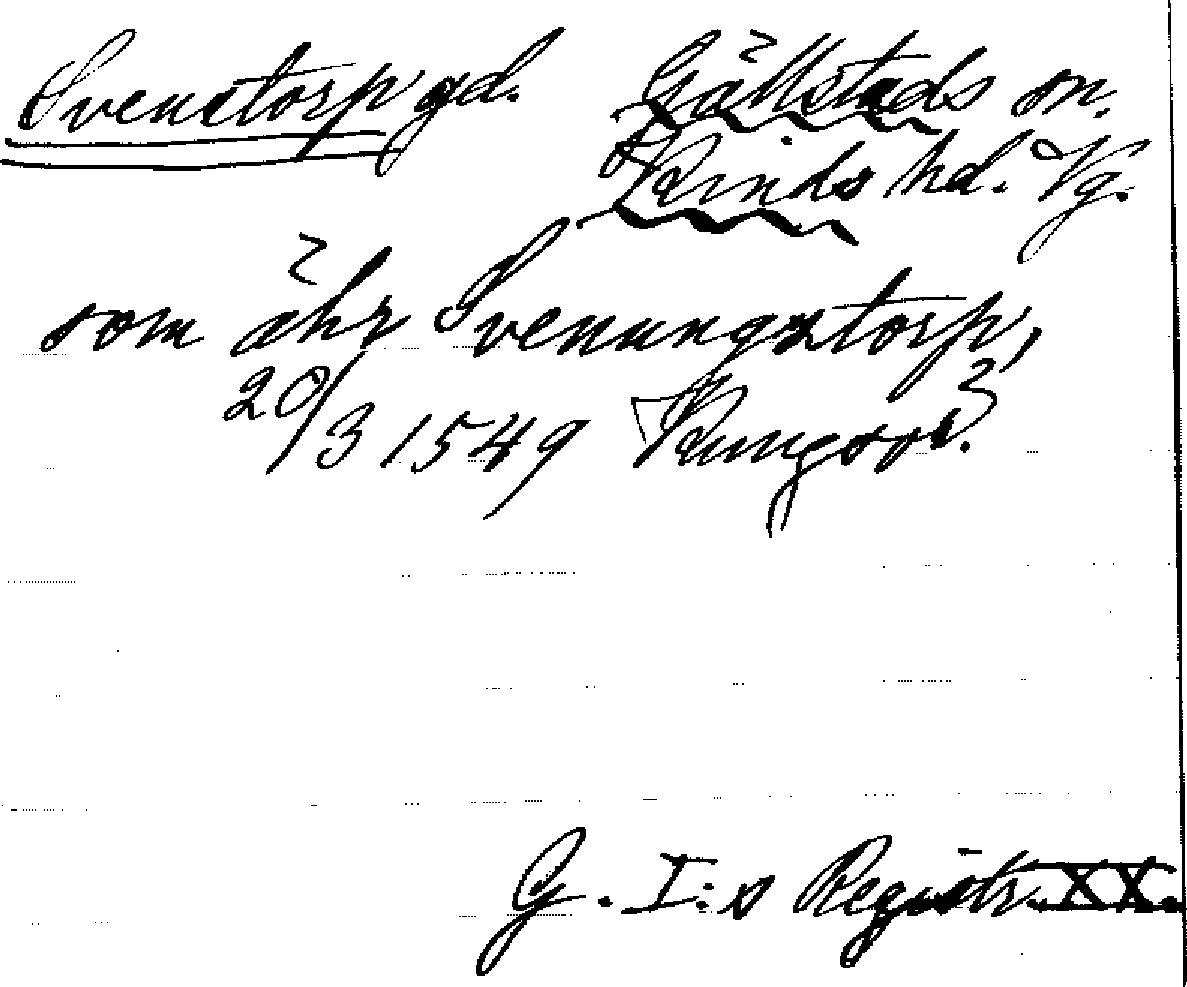 Svenstorp gd. Gällstads sn.
Kinds hd. Vg.
som ähr Svenungxtorp,
20/3 1549 Kungsör.
G. I:s Registr. XX.